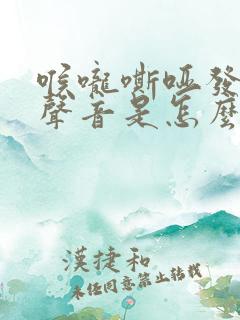 喉嚨嘶啞發
聲音是怎麼
漢捷和
未经同意禁止转载